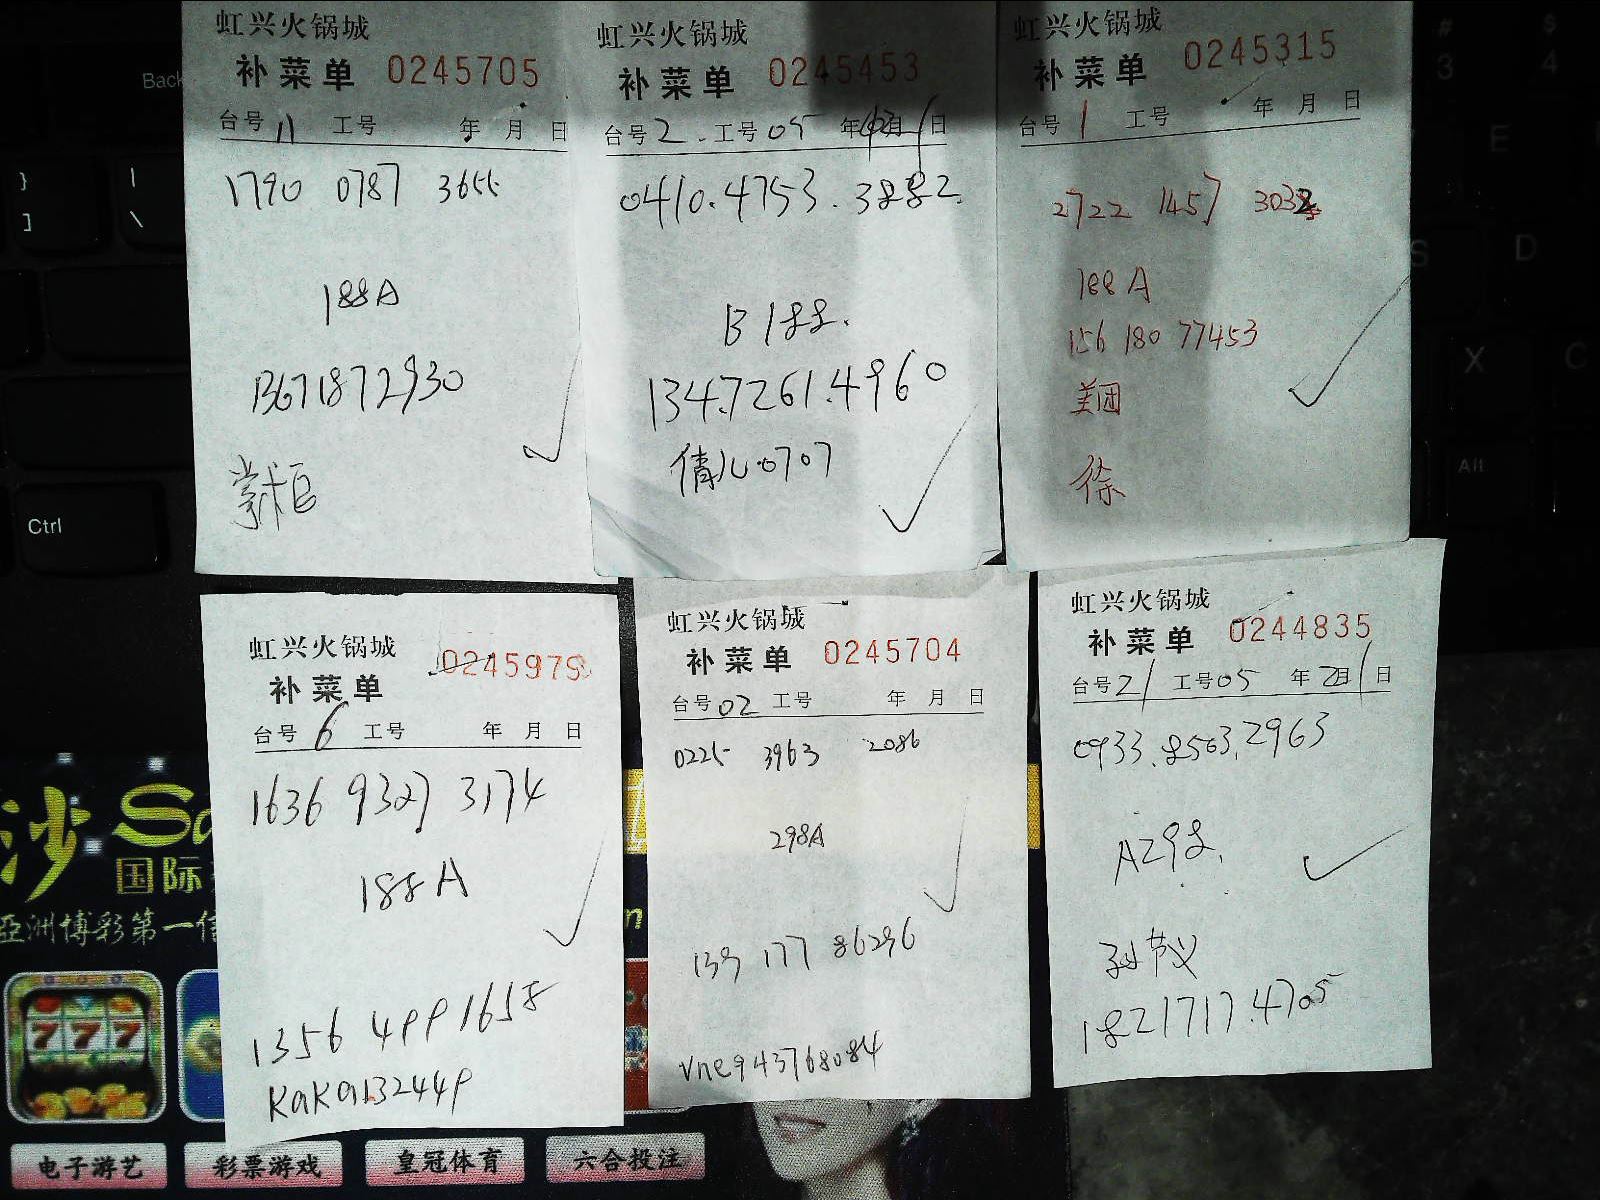 虹兴火锅城
补菜单 0245705
台号 11 工号 年 月 日
1790 0787 3655
188A
13671872930
虹兴火锅城
补菜单 0245453
台号 2 工号 05 年 月 1 日
0410.4753.3882
B188.
134.7261.4960
倩儿0707
虹兴火锅城
补菜单 0245315
台号 1 工号 年 月 日
2722 1457 3032
188A
156 180 77453
徐
虹兴火锅城
补菜单 0245979
台号 6 工号 年 月 日
1636 9327 3174
188A
1356 499 1658
KaKa132449
虹兴火锅城
补菜单 0245704
台号 02 工号 年 月 日
0225 3963 2086
298A
139 177 86296
vne943768084
虹兴火锅城
补菜单 0244835
台号 21 工号 05 年 2月 1 日
0933.8503.2963
A298.
1821717.4705
Back
}
]
|
\
Ctrl
#
3
$
4
E
S
D
X
C
Alt
沙 Sa
国际
亞洲博彩第一信
777
电子游艺
彩票游戏
皇冠体育
六合投注